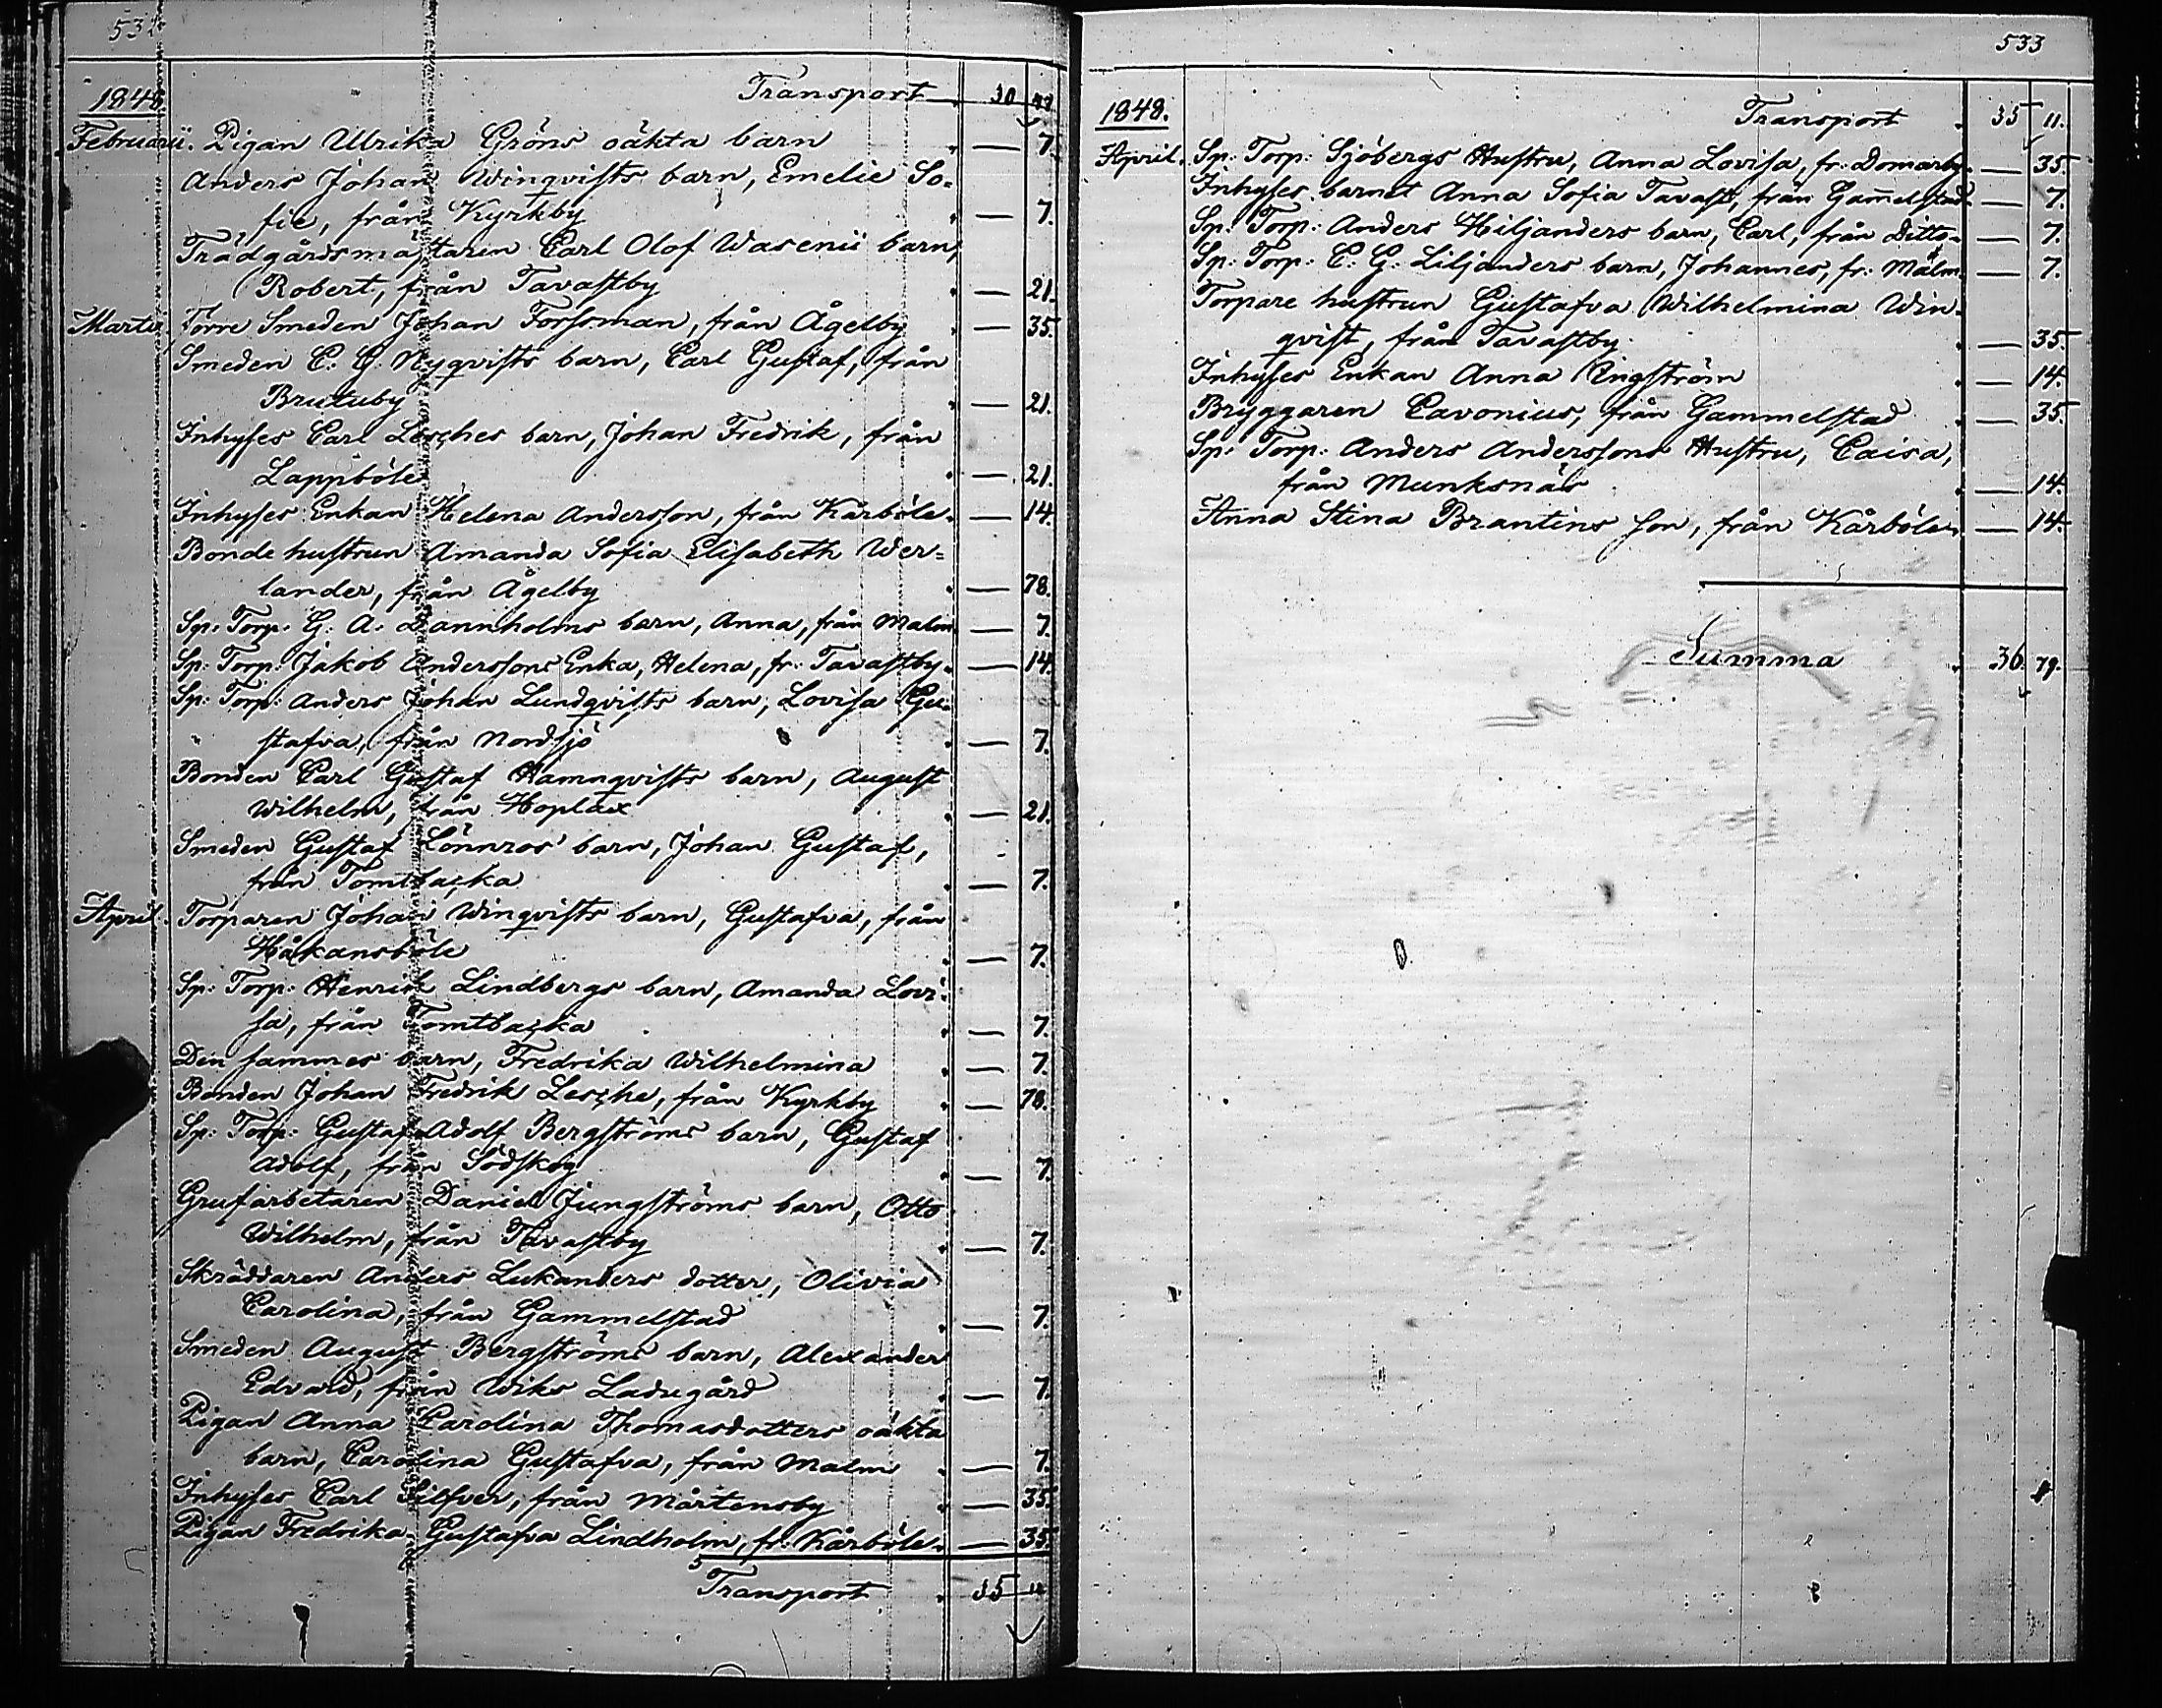 532
1848. Transport 30
Februarii. Pigan Ulrika Gröns oäkta barn — 7.
Anders Johan Winqvists barn, Emelie So-
fie, från Kyrkby — 7.
Trädgårdsmästaren Carl Olof Wasenii barn,
Robert, från Tavastby — 21.
Martii Förre Smeden Johan Forssman, från Ågelby — 35.
Smeden C. G. Nyqvists barn, Carl Gustaf, från
Brutuby — 21.
Inhyses Carl Lesches barn, Johan Fredrik, från
Lappböle — 21.
Inhyses Enkan Helena Andersson, från Kårböle. — 14.
Bonde hustrun Amanda Sofia Elisabeth Wer=
lander, från Ågelby — 78.
Sp: Torp: G: A: Dannholms barn, Anna, från Malm — 7.
Sp: Torp: Jakob Anderssons Enka, Helena, fr: Tavastby. — 14.
Sp: Torp: Anders Johan Lundqvists barn, Lovisa Gu-
stafva, från Nordsjö — 7.
Bonden Carl Gustaf Hamnqvists barn, August
Wilhelm, från Hoplax — 21.
Smeden Gustaf Lönnros' barn, Johan Gustaf,
från Tomtbacka — 7.
April. Torparen Johan Winqvists barn, Gustafva, från
Håkansböle — 7.
Sp: Torp: Henrik Lindbergs barn, Amanda Lovi-
sa, från Tomtbacka — 7.
Den sammes barn, Fredrika Wilhelmina — 7.
Bonden Johan Fredrik Lesche, från Kyrkby — 78.
Sp: Torp: Gustaf Adolf Bergströms barn, Gustaf
Adolf, från Södskog — 7.
Grufarbetaren Daniel Jungströms barn, Otto
Wilhelm, från Tavastby — 7.
Skräddaren Anders Lukanders dotter, Olivia
Carolina, från Gammelstad — 7.
Smeden August Bergströms barn, Alexander
Edvard, från Wiks Ladugård — 7.
Pigan Anna Carolina Thomasdotters oäkta
barn, Carolina Gustafva, från Malm — 7.
Inhyses Carl Silfver, från Mårtensby — 35.
Pigan Fredrika Gustafva Lindholm, fr: Kårböle. — 35.
Transport 35 11
533
1848. Transport 35 11.
April. Sp: Torp: Sjöbergs Hustru, Anna Lovisa, fr: Domarby. — 35.
Inhyses barnet Anna Sofia Tavast, från Gam̅elstad. — 7.
Sp: Torp: Anders Hiljanders barn, Carl, från Ditto. — 7.
Sp: Torp: C: G: Liljanders barn, Johannes, fr: Malm. — 7.
Torpare hustrun Gustafva Wilhelmina Win-
qvist, från Tavastby. — 35.
Inhyses Enkan Anna Engström — 14.
Bryggaren Cavonius, från Gammelstad — 35.
Sp: Torp: Anders Anderssons Hustru, Caisa,
från Munksnäs — 14.
Anna Stina Brantins son, från Kårböle. — 14.
Summa 36. 79.